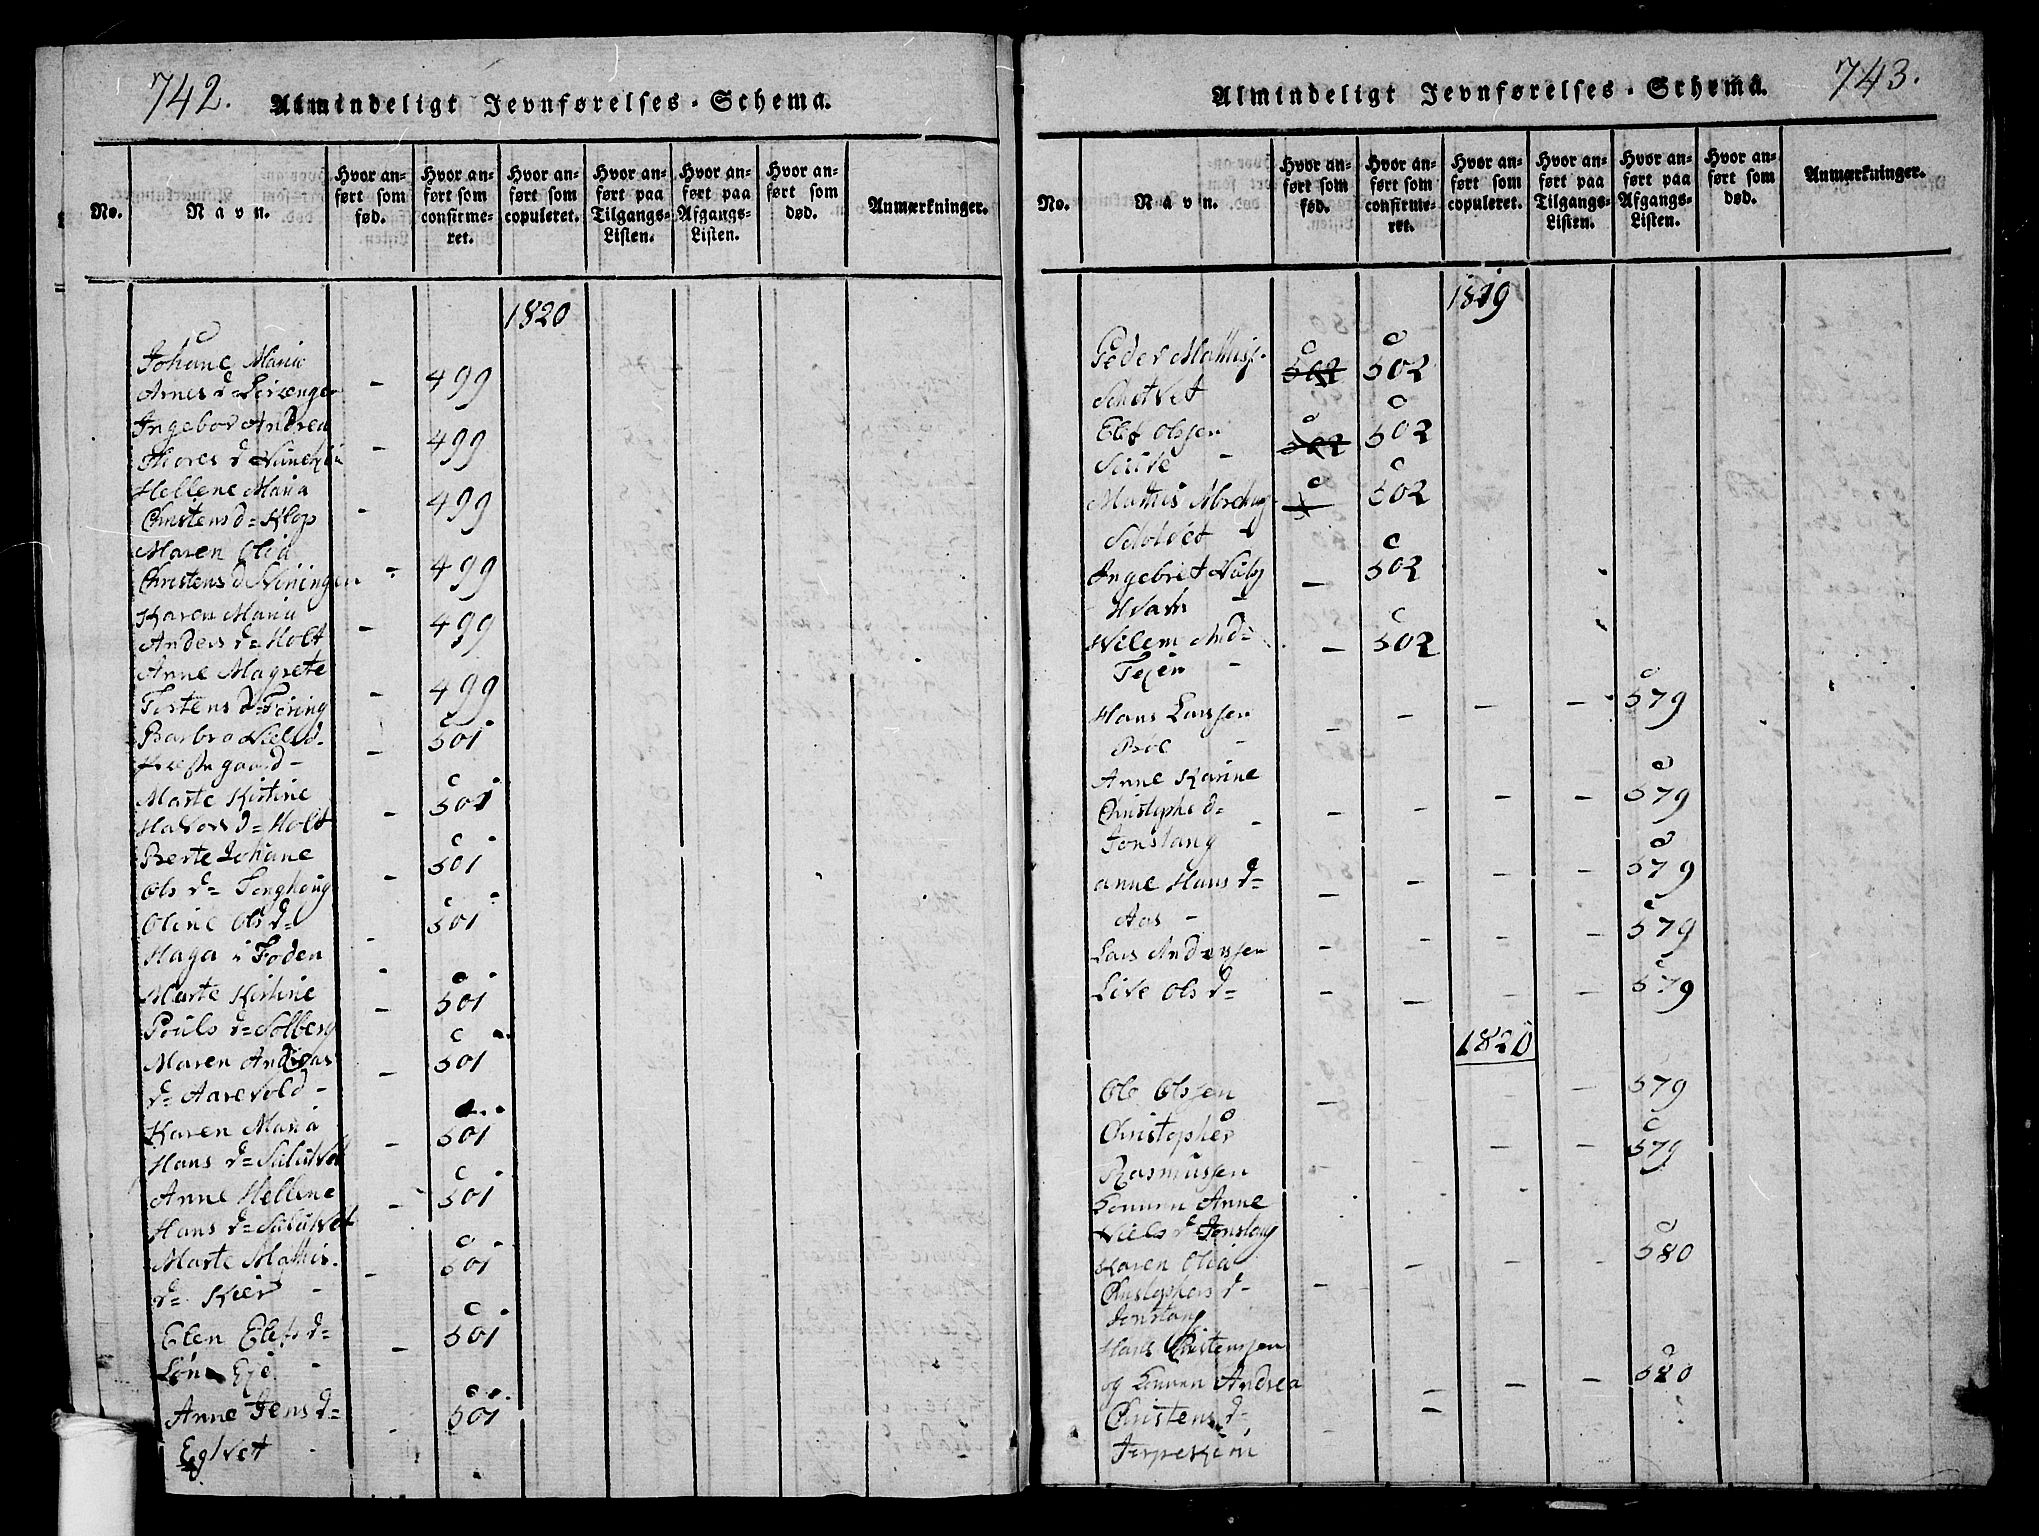 742.
Almindeligt Jevnførelses-Schema.
No.
Navn.
Hvor anført som fød.
Hvor anført som confirmeret.
Hvor anført som copuleret.
Hvor anført paa Tilgangs-Listen.
Hvor anført paa Afgangs-Listen.
Hvor anført som død.
Anmærkninger.
1820
Johane Maria
Arnes d= - 499
Ingebor Andrea
Thores d - 499
Hellene Maria
Christens d= Klop - 499
Maren Olia
Christens d - 499
Karen Maria
Anders d= Holt - 499
Anne Magrete
Tostens d= - 499
Barbro Niels d.
Prestegaard - - 501
Marte Kistine
Halvors d= Holt - 501
Berte Johane
Ols d= - 501
Oline Ols d=
Haga i Foden - 501
Marte Kistine
Pouls d= Solberg - 501
Maren Andreas
d= Aarevold - - 501
Karen Maria
Hans d= - 501
Anne Hellene
Hans d= - 501
Marte Mathis
d= Kier - - 501
Elen Elefs d=
Eje - - 501
Anne Jens d=
Eglvet - 501
743.
Almindeligt Jevnførelses-Schema.
No.
Navn.
Hvor anført som fød.
Hvor anført som confirmeret.
Hvor anført som copuleret.
Hvor anført paa Tilgangs-Listen.
Hvor anført paa Afgangs-Listen.
Hvor anført som død.
Anmærkninger.
1819
Peder Mathis.
502 502
Elef Olssen
502 502
Mathis
502
Ingebret Niels
Hvam - - 502
Wilem And=
- - 502
Hans Larssen
- - - - 579
Anne Karine
Christophe d=
Jonstang - - - - - 579
Anne Hans d=
Aas - - - - - 579
Lars Anderssen - - - - 579
Live Ols d= - - - - 579
1820
Ole Olssen - - 579
Christopher
Rasmussen - - - - 579
Anne
Niels d= Jonstang
Karen Olia
Christophers d=
Jonstang - - - - 580
Hans Christenssen
og Andrea
Christens d= - - - - 580